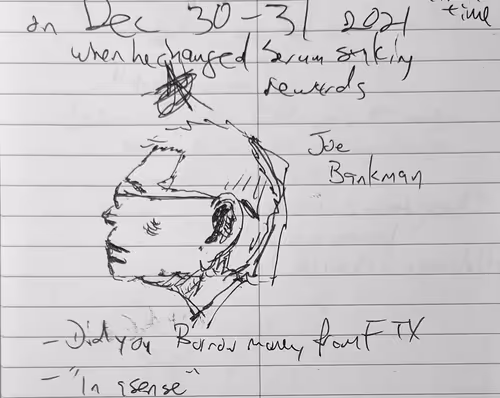 time
on Dec 30-31 2021
when he changed Serum staking
rewards
Joe
Bankman
- Did you Borrow money from FTX
- "In a sense"